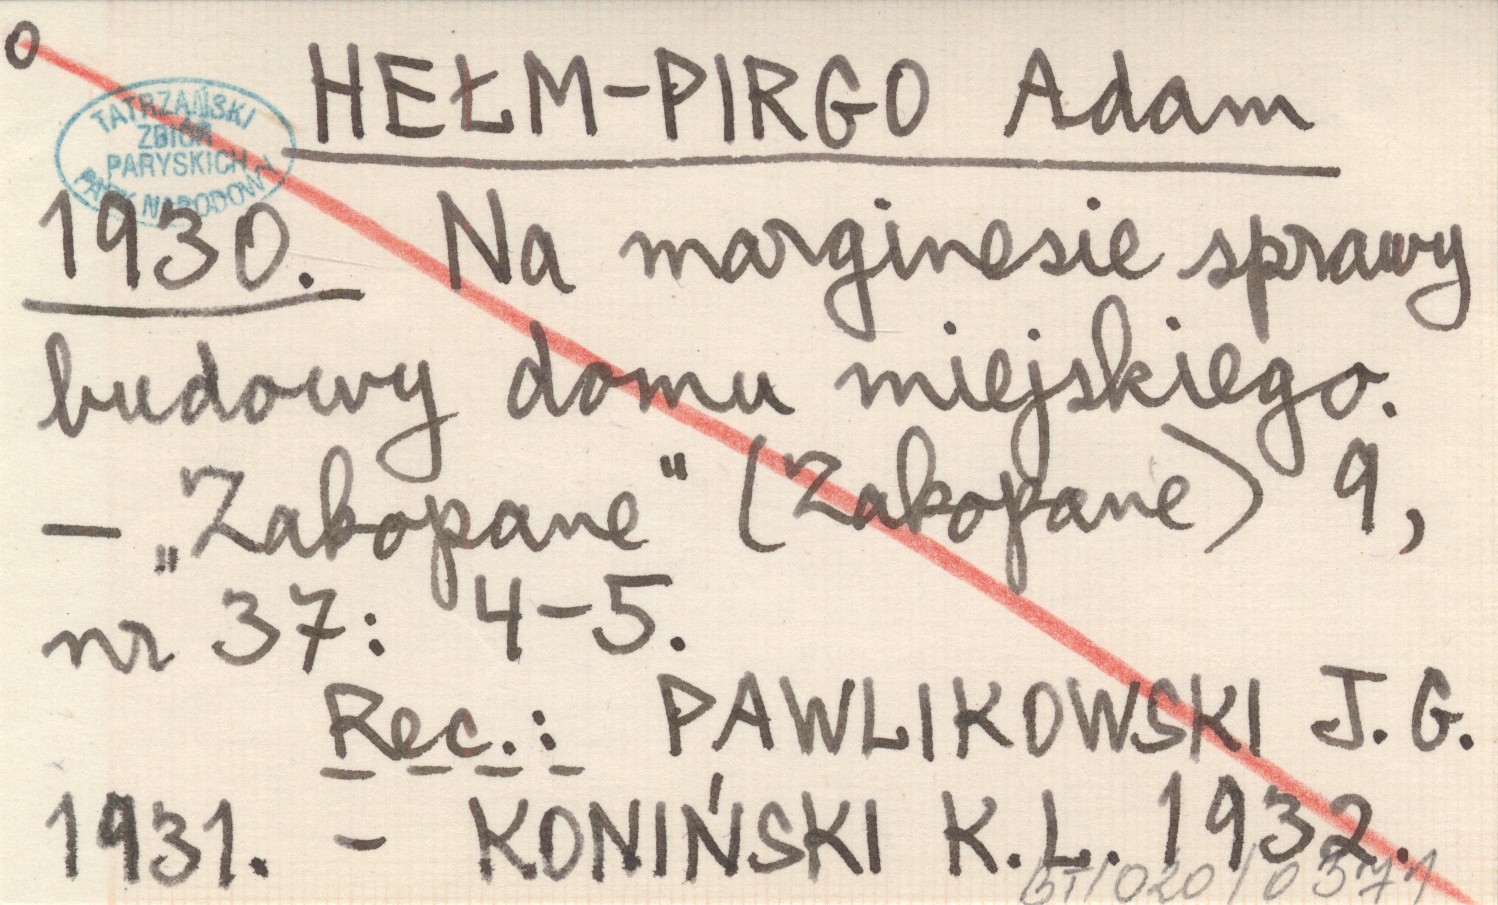 0
HEŁM-PIRGO Adam
TATRZAŃSKI
ZBIÓR
PARYSKICH
PARK NARODOWY
1930. Na marginesie sprawy
budowy domu miejskiego.
— „Zakopane" (Zakopane) 9,
nr 37: 4-5.
Rec.: PAWLIKOWSKI J. G.
1931. - KONIŃSKI K.L. 1932.
BT/020/0371